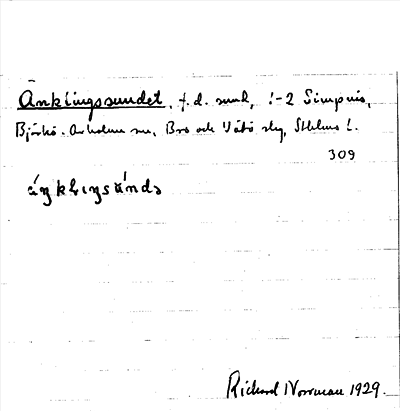 Änklingssundet, f.d. sund, 1-2 Simpnäs,
Björkö-Arholma sn, Bro och Vätö skg, Sthlms l.
309
Richard Norrman 1929.